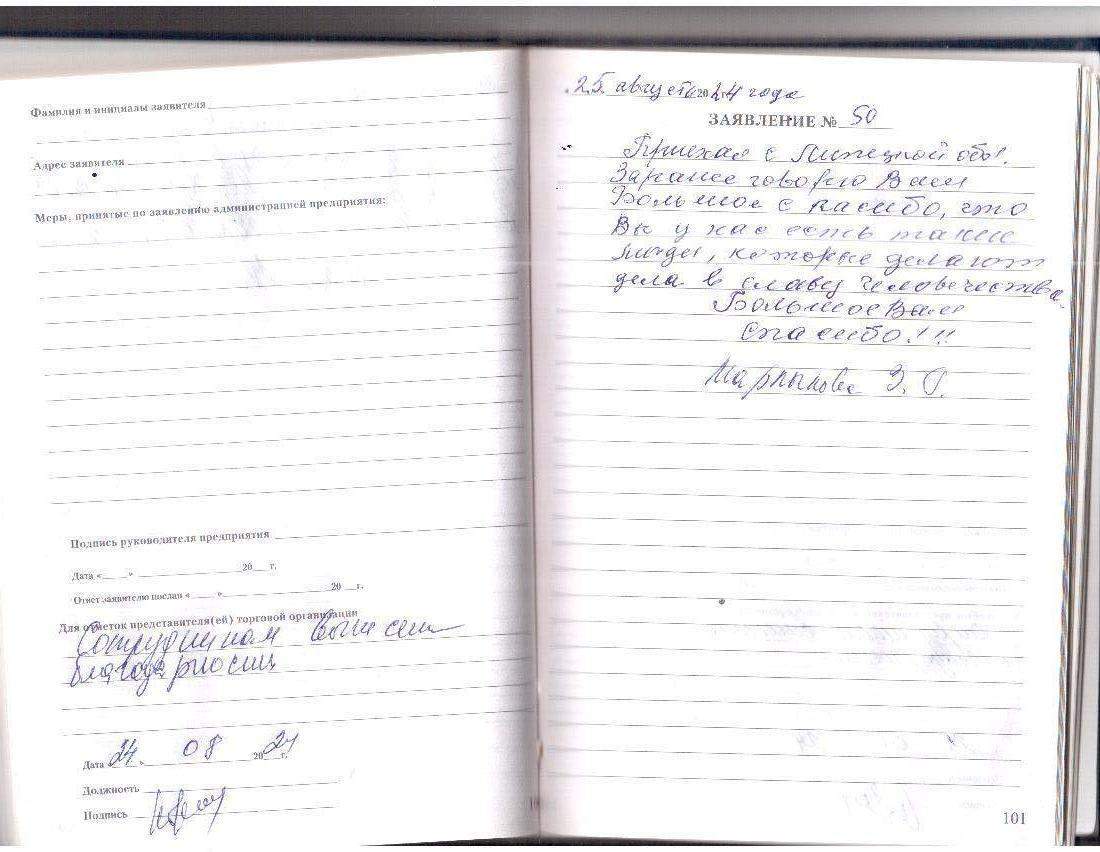 Фамилия и инициалы заявителя
Адрес заявителя
Меры, принятые по заявлению администрацией предприятия:
Подпись руководителя предприятия
Дата « » 20 г.
Ответ заявителю послан « » 20 г.
Для отметок представителя(ей) торговой организации
Сотрудникам
благодарности
Дата «24» 08 2024 г.
Должность
Подпись
25 августа 2024 года
ЗАЯВЛЕНИЕ № 50
Приехал с Липецкой обл.
Заранее говорю Вам
Большое спасибо, что
Вы у нас есть такие
люди, которые делают
дела в славу человечества.
Большое Вам
Спасибо!!!
З. Г.
101